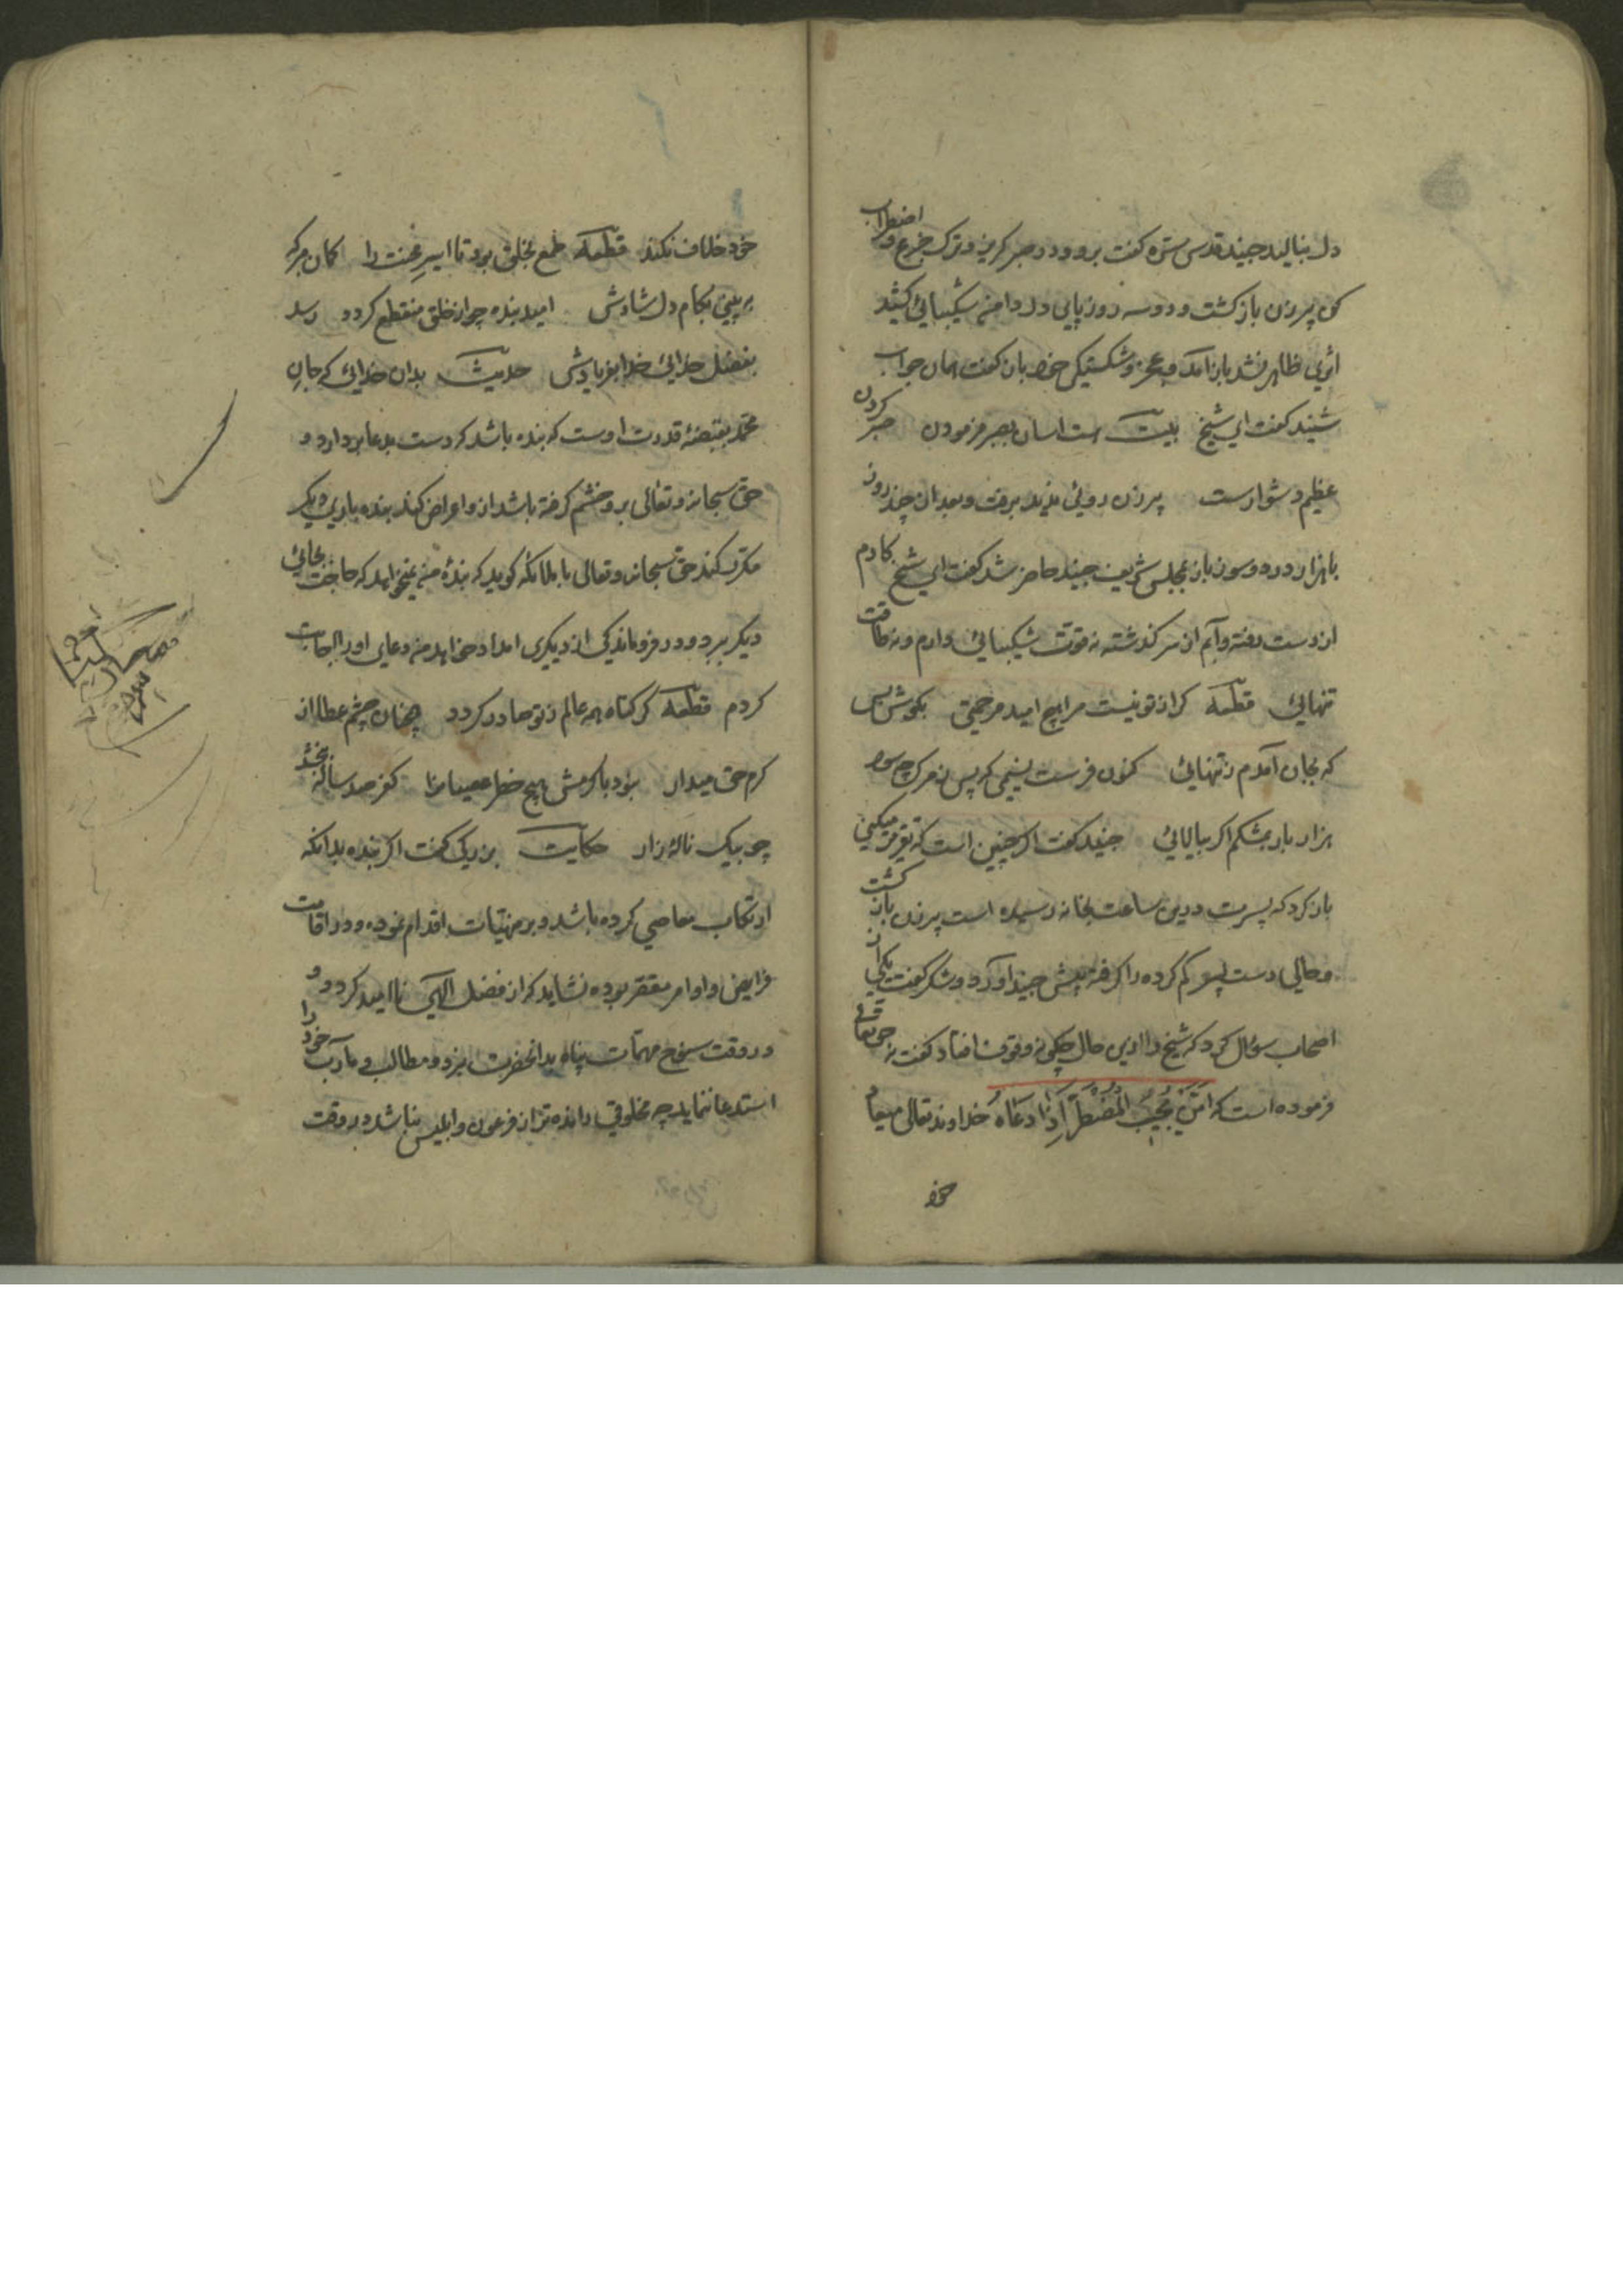 دل بنالید جنید قدس سره کفت برو و در صبر کریز و ترک جزع و اضطراب
کن پیرزن باز کشت و دو سه روز پای دل در دامن شکیبائی کشید
اثری ظاهر نشد باز آمد و عجز و شکستکی خود باز کفت همان جواب
شنید کفت ای شیخ بیت هست اسان بصبر فرمودن صبر کردن
عظیم دشوارست پیرزن روئی بدید برفت و بعد از چند روز
با هزار درد و سوز باز بمجلس شریف جنید حاضر شد کفت ای شیخ کارم
از دست رفته و آبم از سر کذشته نه قوت شکیبائی دارم و نه طاقت
تنهائی قطعه کر از تو نیست مرا هیچ امید مرحمتی بکوش بس
که بجان آمدم ز تنهائی کنون فرست نسیمی که پس ز مرک چه سود
هزار بار بخاکم اکر بیالائی جنید کفت اکر چنین است که تقریر میکنی
باز کرد که پسرت درین ساعت بخانه رسیده است پیرزن باز کشت
و حالی دست پسر کم کرده را کرفته پیش جنید آورد و شکر کفت یکی از
اصحاب سؤال کرد که شیخ را ازین حال چکونه وقوف افتاد کفت نه حق تعالی
فرموده است که امّن یُجیبُ المُضطَرَّ اِذا دَعَاهُ خداوند تعالی میعاد
خود
خود خلاف نکند قطعه طمع بخلق بود تا اسیر محنت را کمان مبر که
ببینی بکام دل شادش امید بنده چو از خلق منقطع کردد رسد
بفضل خدائی خدا بفریادش حدیث بدان خدائی که جان
محمد بقبضۀ قدرت اوست که بنده باشد که دست بدعا بردارد و
حق سبحانه و تعالی برو خشم کرفته باشد ازو اعراض کند بنده باری دیکر
مکرر کند حق سبحانه و تعالی با ملائکه کوید که بندۀ من نمیخواهد که حاجت بجائی
دیکر برد و در فروماندکی از دیکری امداد خواهد من دعای او را اجابت
کردم قطعه کر کناه همه عالم ز تو صادر کردد همچنان چشم عطا از
کرم حق میدار نبود با کرمش هیچ خطر عصیان را کفر صد ساله ببخشد
چو بیک نالۀ زار حکایت بزرکی کفت اکر بنده بدانکه
ارتکاب معاصی کرده باشد و بر منهیات اقدام نموده و در اقامت
فرایض و اوامر مقصر بوده نشاید که از فضل الهی ناامید کردد و
در وقت سنوح مهمات پناه بدانحضرت نبرد و مطالب و مآرب خود را
استدعا ننماید چه مخلوقی رانده تر از فرعون و ابلیس نباشد در وقت